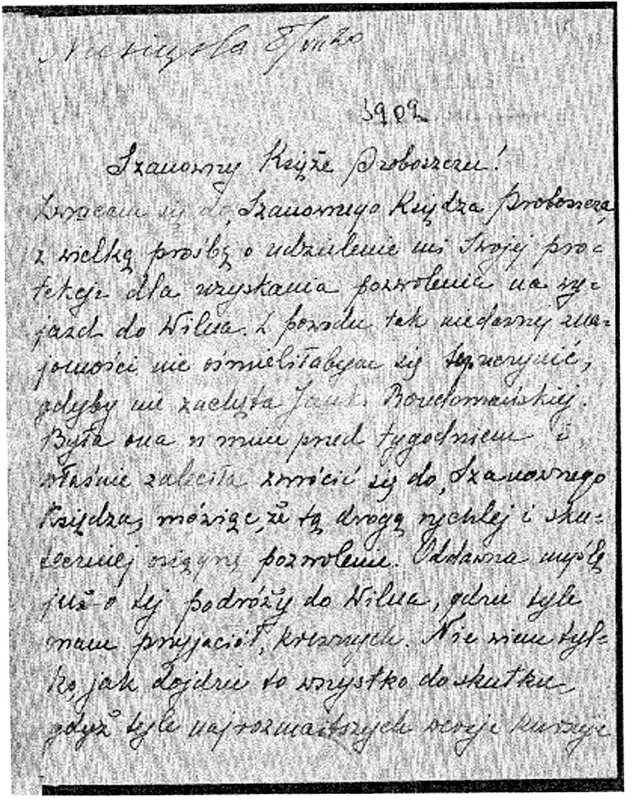 8/VII 20
1902
Szanowny Księże Proboszczu!
Zwracam się do Szanownego Księdza Proboszcza
z wielką prośbą o udzielenie mi Swojej pro-
tekcji dla uzyskania pozwolenia na wy-
jazd do Wilna. Z powodu tak niedawnej zna-
jomości nie ośmieliłabym się tego uczynić,
gdyby nie zachęta
Była ona u mnie przed tygodniem i
właśnie zaleciła zwrócić się do Szanownego
Księdza, mówiąc, że tą drogą rychlej i sku-
teczniej osiągnę pozwolenie. Oddawna myślę
już o tej podróży do Wilna, gdzie tyle
mam przyjaciół, krewnych. Nie wiem tyl-
ko, jak dojdzie to wszystko do skutku
gdyż tyle najrozmaitszych wersji kursuje